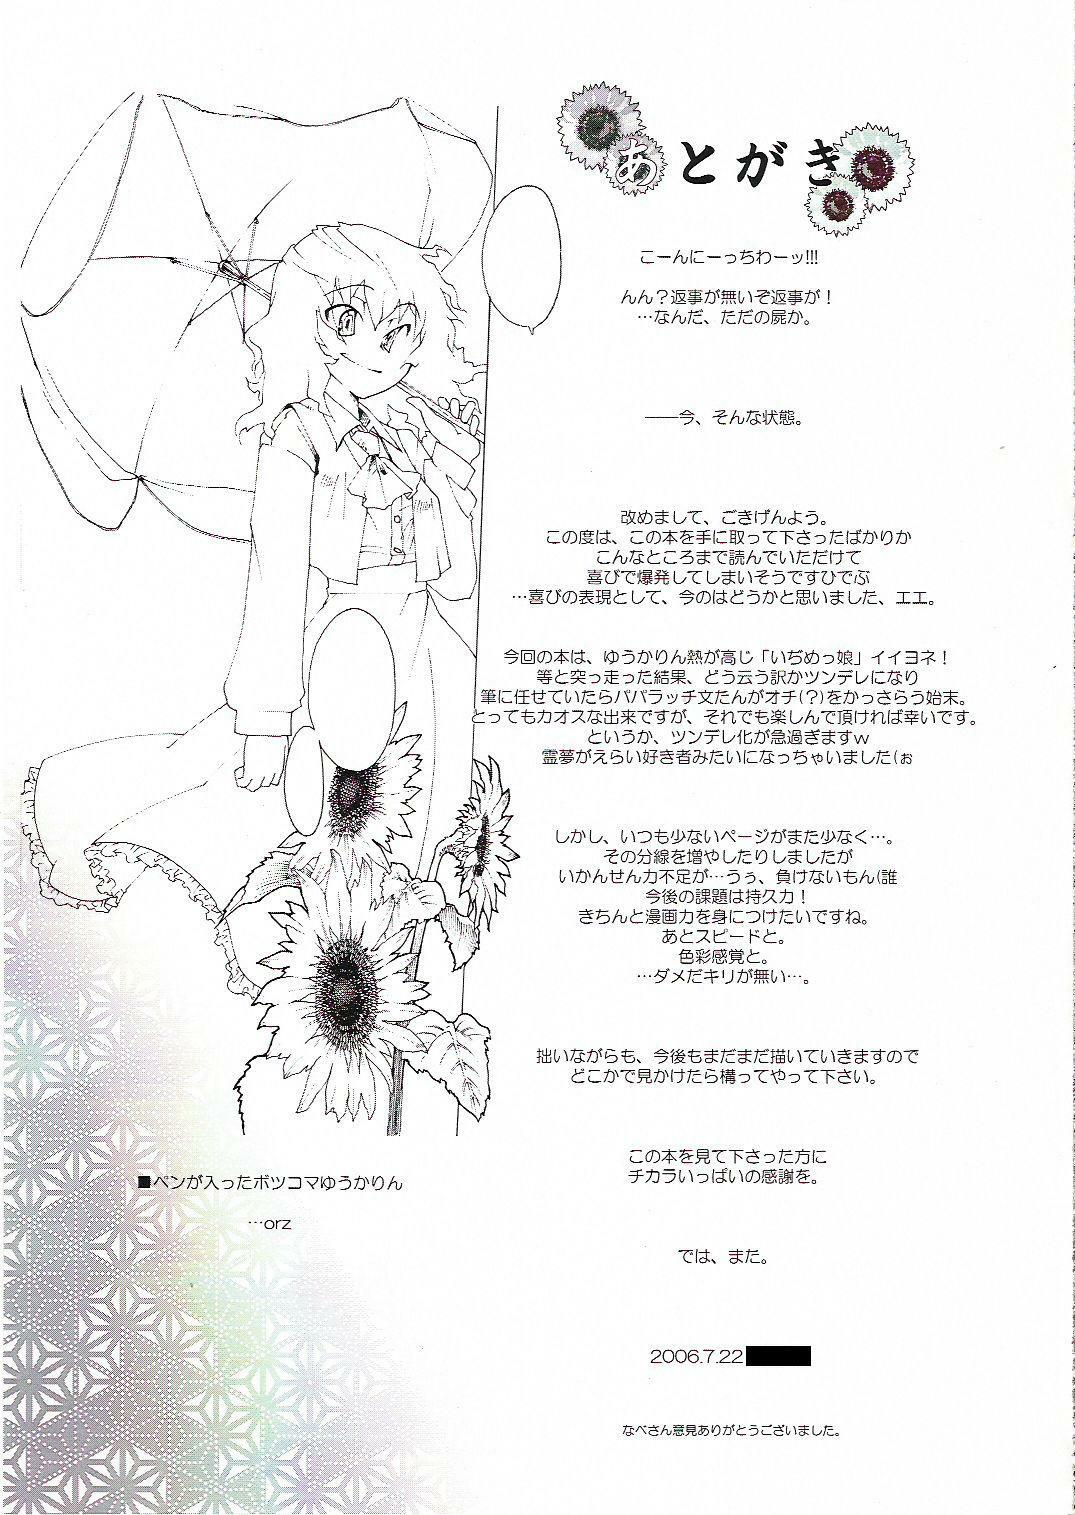 あとがき
こーんにーっちわーッ!!!
んん？返事が無いぞ返事が！
…なんだ、ただの屍か。
――今、そんな状態。
改めまして、ごきげんよう。
この度は、この本を手に取って下さったばかりか
こんなところまで読んでいただけて
喜びで爆発してしまいそうですひでぶ
…喜びの表現として、今のはどうかと思いました、エエ。
今回の本は、ゆうかりん熱が高じ「いぢめっ娘」イイヨネ！
等と突っ走った結果、どう云う訳かツンデレになり
筆に任せていたらパパラッチ文たんがオチ(？)をかっさらう始末。
とってもカオスな出来ですが、それでも楽しんで頂ければ幸いです。
というか、ツンデレ化が急過ぎますw
霊夢がえらい好き者みたいになっちゃいました(ぉ
しかし、いつも少ないページがまた少なく…。
その分線を増やしたりしましたが
いかんせん力不足が…うぅ、負けないもん(誰
今後の課題は持久力！
きちんと漫画力を身につけたいですね。
あとスピードと。
色彩感覚と。
…ダメだキリが無い…。
拙いながらも、今後もまだまだ描いていきますので
どこかで見かけたら構ってやって下さい。
この本を見て下さった方に
チカラいっぱいの感謝を。
では、また。
2006.7.22
なべさん意見ありがとうございました。
■ペンが入ったボツコマゆうかりん
…orz